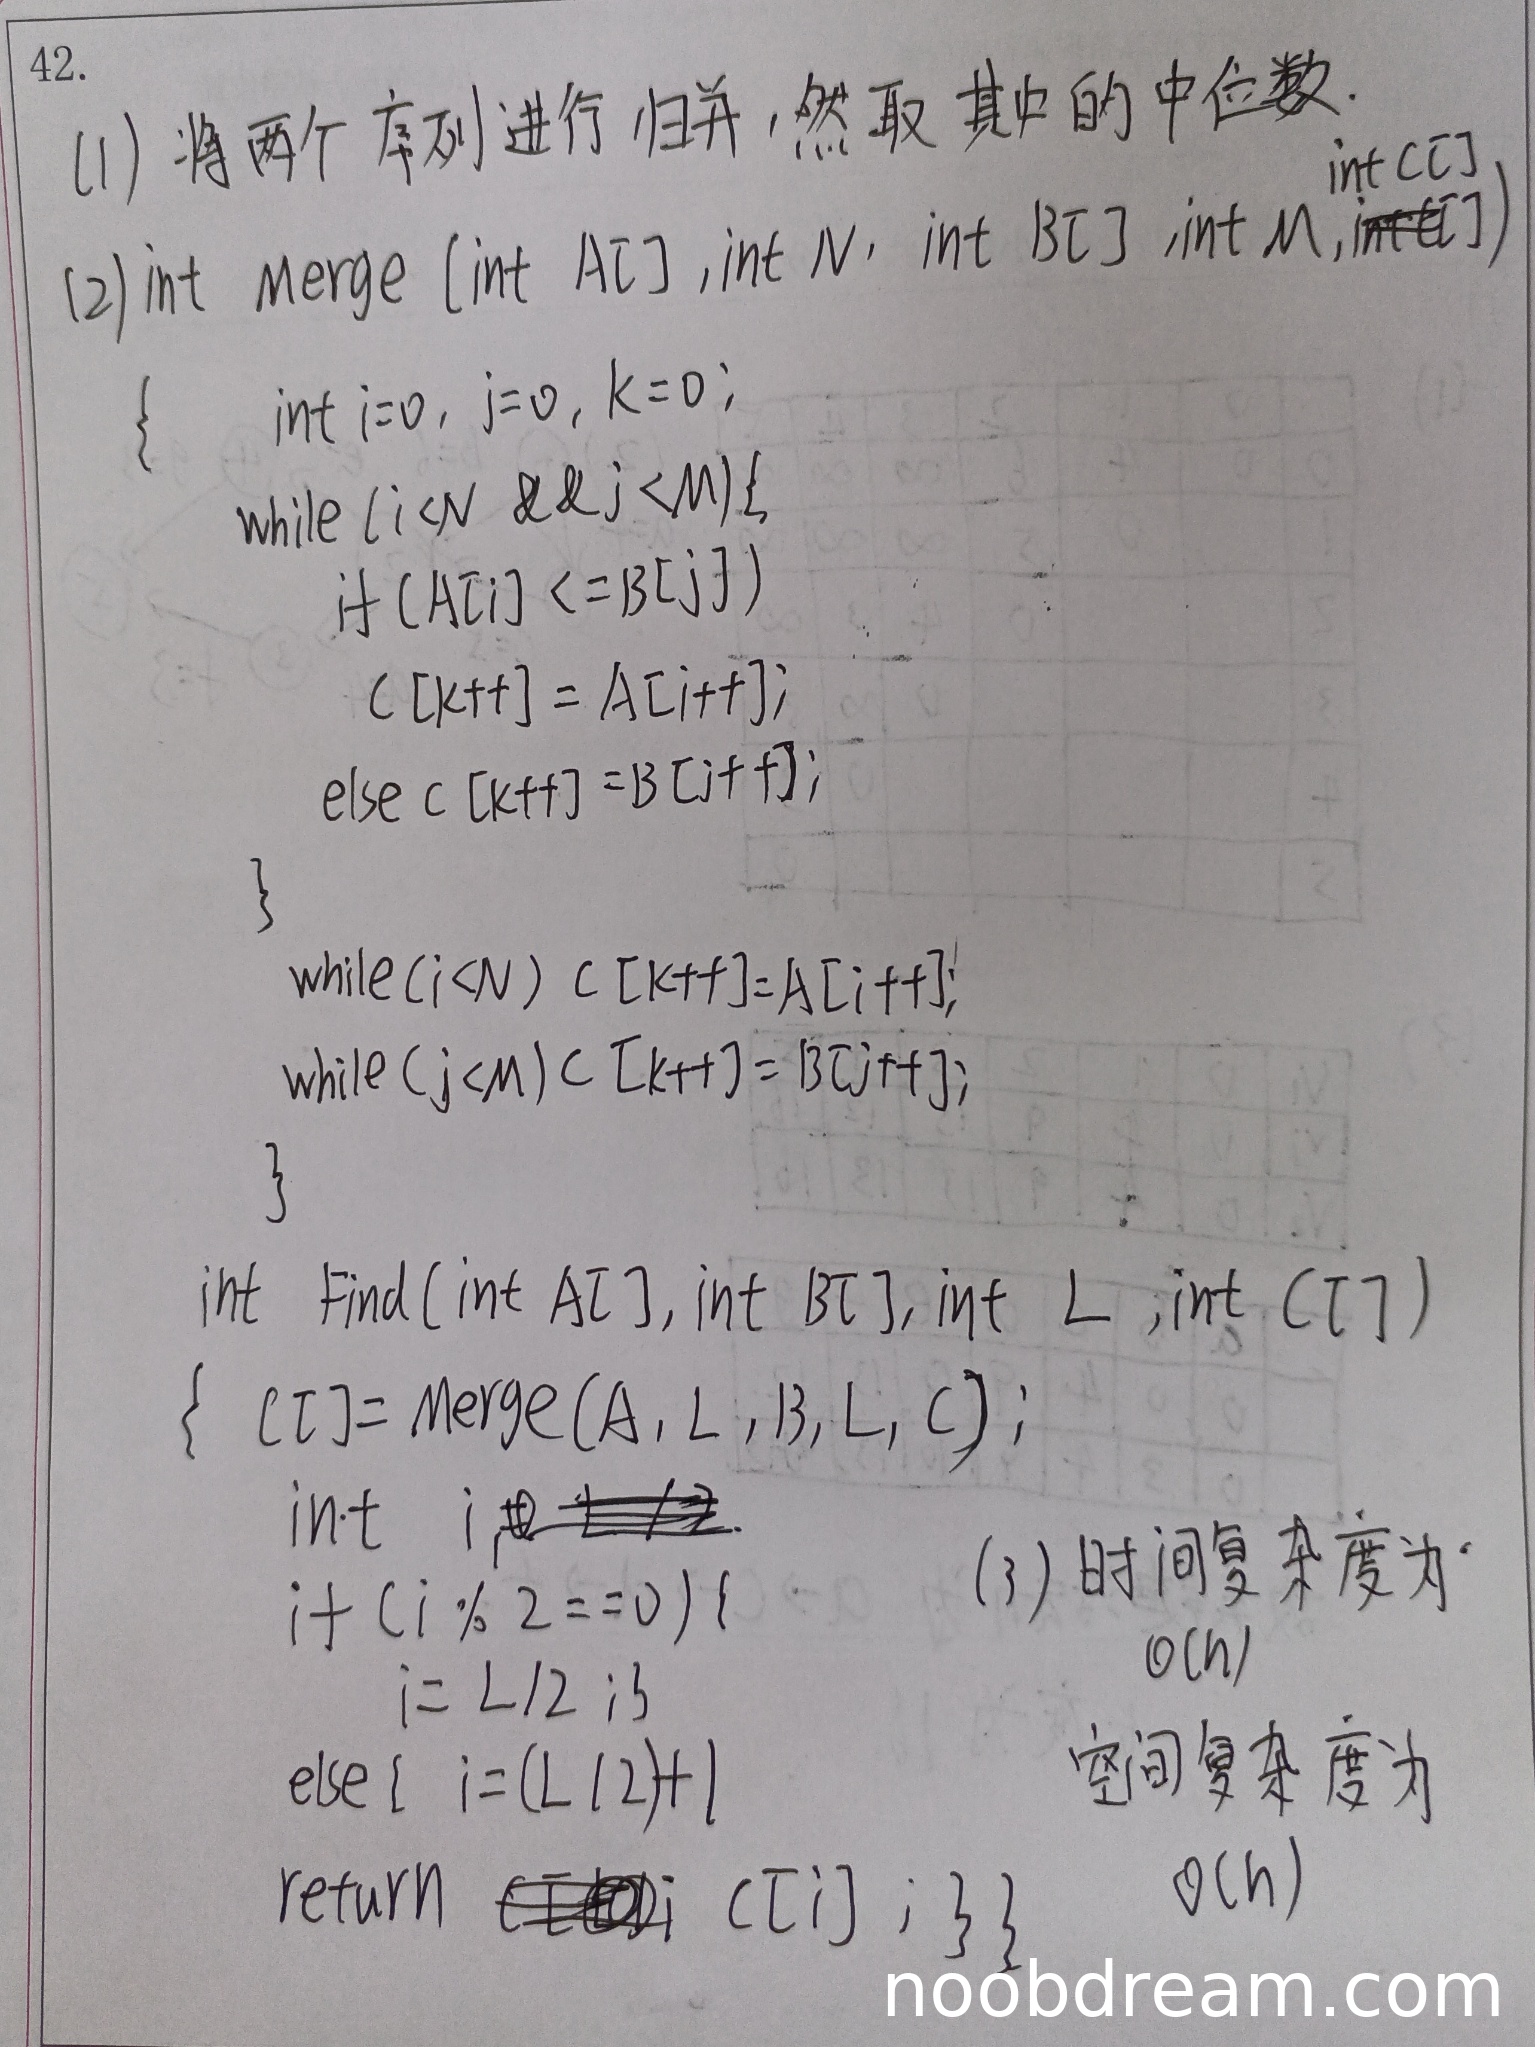 42.
(1) 将两个序列进行归并,然取其中的中位数.
int C[]
(2) int Merge (int A[], int N, int B[], int M, )
{ int i=0, j=0, k=0;
while (i<N && j<M){
if (A[i] <=B[j])
C[k++] = A[i++];
else C[k++] =B[j++];
}
while(i<N) C[k++]=A[i++];
while(j<M) C[k++] = B[j++];
}
int Find(int A[], int B[], int L, int C[])
{ C[]= Merge(A, L, B, L, C);
int i
if (i % 2==0) {
i= L/2 ;}
else{ i=(L/2)+1
return C[i] ; } }
(3) 时间复杂度为
O(n)
空间复杂度为
O(n)
noobdream.com